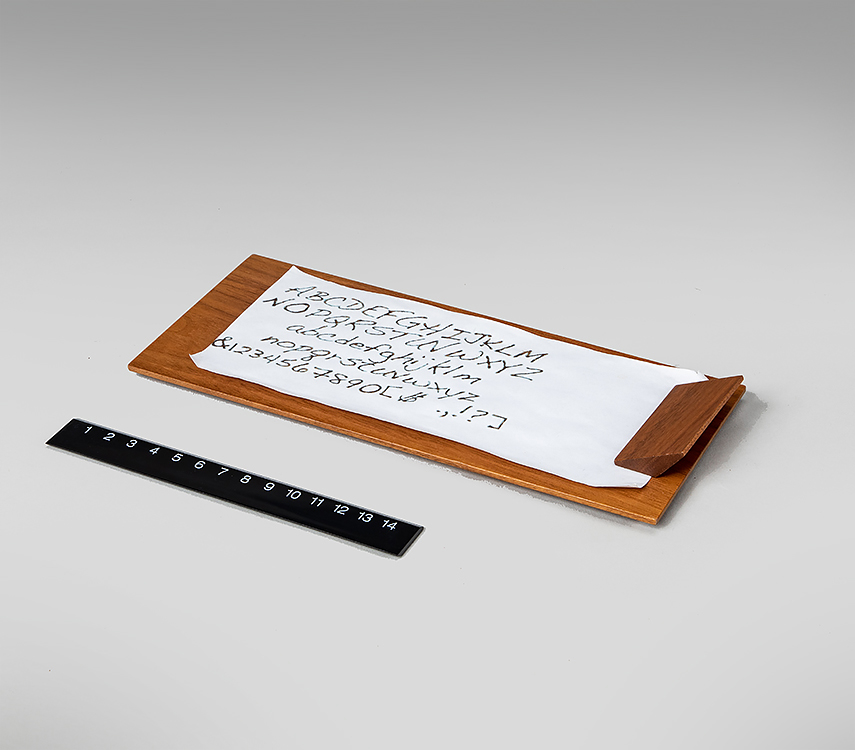 ABCDEFGHIJKLM
NOPQRSTUVWXYZ
abcdefghijklm
nopqrstuvwxyz
&1234567890[$ .,!?]
1 2 3 4 5 6 7 8 9 10 11 12 13 14